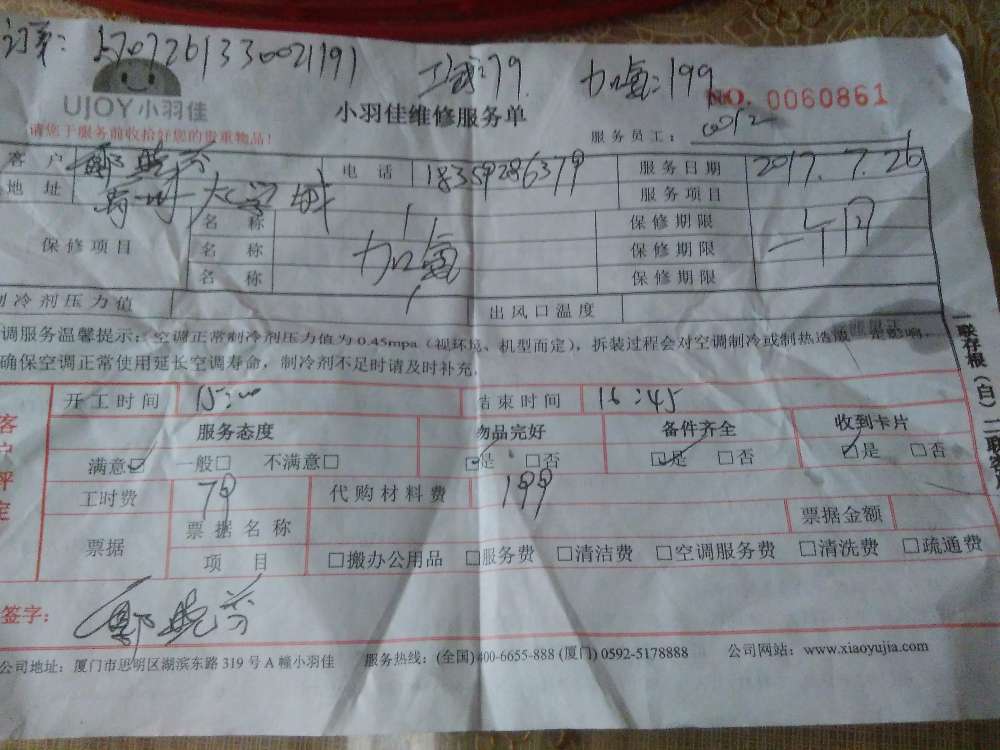 订单: 5707261330021191 工时:79 加氟:199
UJOY小羽佳 小羽佳维修服务单 NO. 0060861
请您于服务前收拾好您的贵重物品! 服务员工:
客户 电话 18359286379 服务日期 2017.7.26
地址 大学城 服务项目
保修项目 名称 保修期限
名称 加氟 保修期限 一个月
名称 保修期限
制冷剂压力值 出风口温度
调服务温馨提示:空调正常制冷剂压力值为 0.45mpa(视环境、机型而定),拆装过程会对空调制冷或制热造成一定影响,
确保空调正常使用延长空调寿命,制冷剂不足时请及时补充。
客户评定
开工时间 15:00 结束时间 16:45
服务态度 物品完好 备件齐全 收到卡片
满意☑ 一般□ 不满意□ ☑是 □否 ☑是 □否 ☑是 □否
工时费 79 代购材料费 199
票据 票据名称 票据金额
项目 □搬办公用品 □服务费 □清洁费 □空调服务费 □清洗费 □疏通费
签字:
公司地址:厦门市思明区湖滨东路 319 号 A 幢小羽佳 服务热线:(全国)400-6655-888 (厦门) 0592-5178888 公司网站:www.xiaoyujia.com
一联存根(白)二联客户